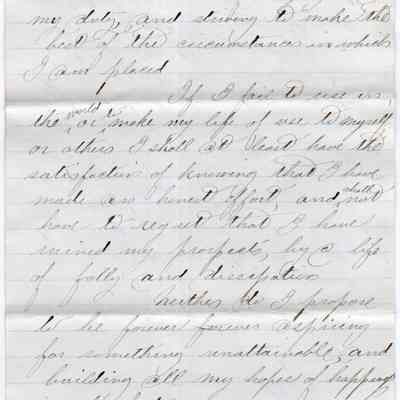 my duty, and striving to make the
best of the circumstances in which
I am placed
If I fail to rise in
the world or to make my life of use to myself
or others I shall at least have the
satisfaction of knowing that I have
made an honest effort, and shall not
have to regret that I have
ruined my prospects, by a life
of folly and dissipation
neither do I propose
to be forever forever aspiring
for something unattainable, and
building all my hopes of happiness